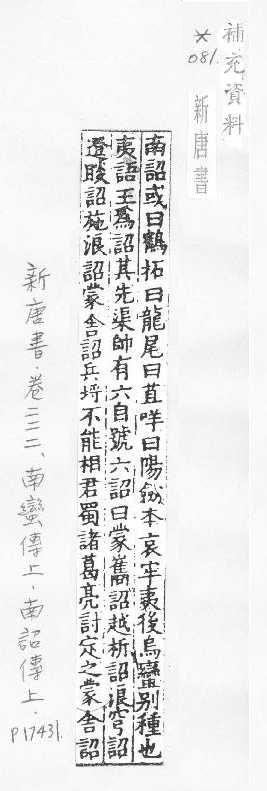 補充資料
*
081.
新唐書
南詔或曰鶴拓曰龍尾曰苴咩曰陽劍本哀牢夷後烏蠻別種也
夷語王為詔其先渠帥有六自號六詔曰蒙巂詔越析詔浪穹詔
邆睒詔施浪詔蒙舍詔兵埒不能相君蜀諸葛亮討定之蒙舍詔
新唐書.卷二二二、南蠻傳上.南詔傳上.
P17431.